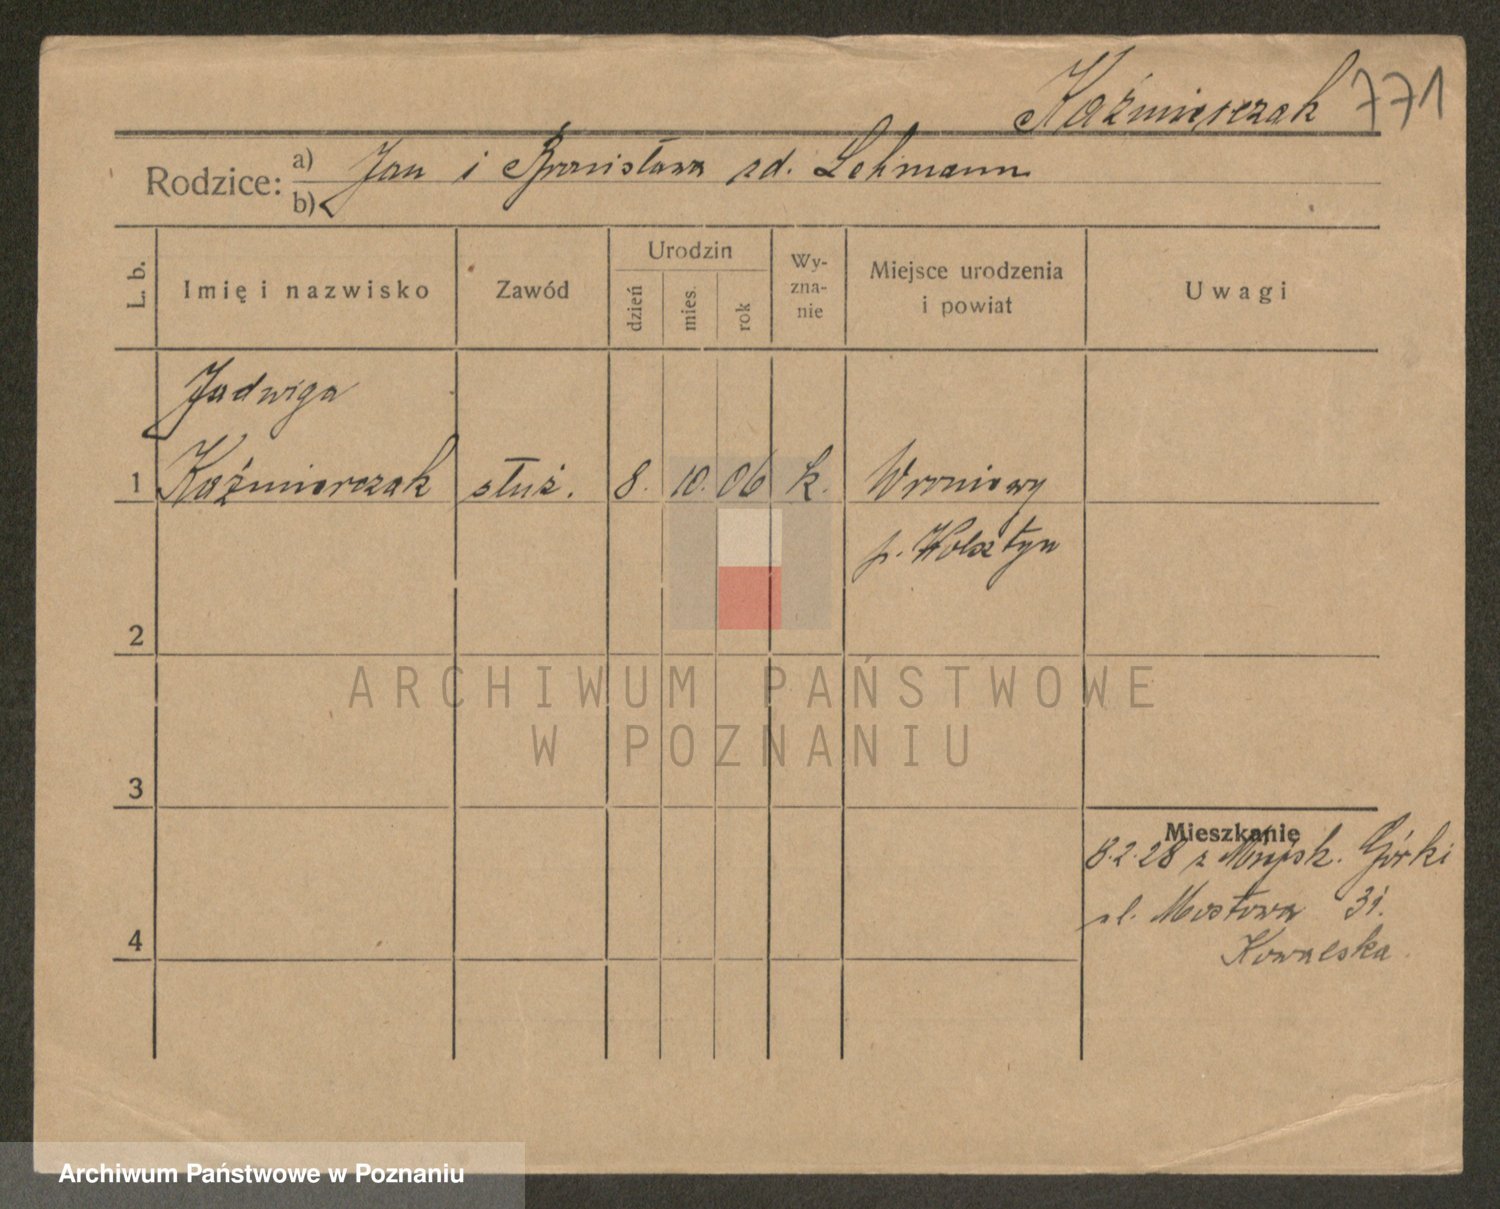 Kaźmierczak 771
Rodzice: a) Jan i Bronisława zd. Lehmann
b)
L. b. Imię i nazwisko Zawód Urodzin dzień mies. rok Wy-zna-nie Miejsce urodzenia i powiat Uwagi
Jadwiga
1 Kaźmierczak służ. 8. 10. 06 k. Wroniawy
p. Wolsztyn
2
ARCHIWUM PAŃSTWOWE
W POZNANIU
3
Mieszkanie
8.2.28 z Miejsk. Górki
ul. Mostowa 31.
4
Kowalska
Archiwum Państwowe w Poznaniu